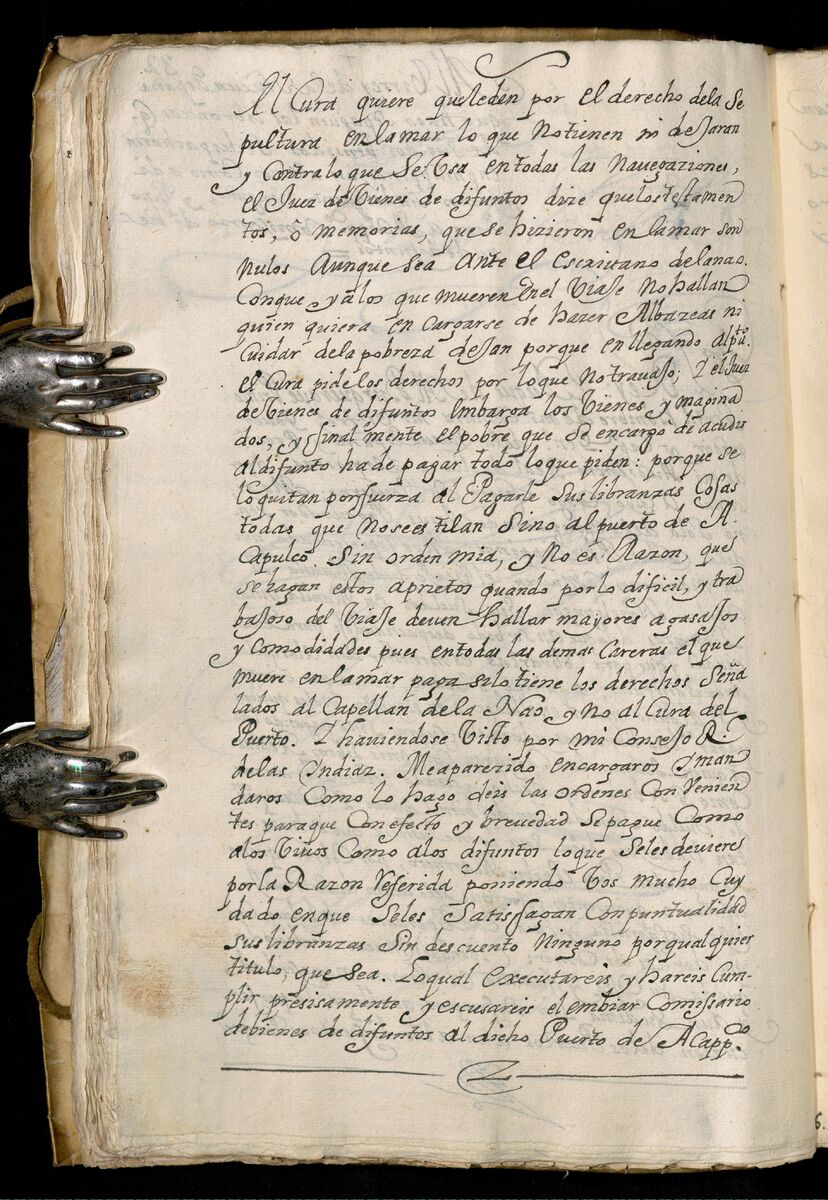 El Cura quiere que leden por el derecho dela Se
pultura enlamar lo que Notienen ni dexaran
y Contralo que Se Vsa entodas las Navegaziones,
el Juez de Vienes de difuntos dize quelostestamen
tos, ô memorias, que se hizieron enlamar son
Nulos Aunque sea Ante el escrivano delanao.
Conque yâlos que mueren Enel Viaje No hallan
quien quiera en cargarse de hazer Albazeas ni
Cuidar dela pobreza dejan porque en llegando alpu.to
el Cura pidelos derechos por loque Notravajo; Y el Juez
de Vienes de difuntos Embarga los Vienes ymagina
dos, y finalmente el pobre que Se encargo de acudir
aldifunto hade pagar todo loque piden: porque se
loquitan porfuerza al Pagarle Sus libranzas Cosas
todas que Nosees tilan Sino alpuerto de A.
Capulco. Sin orden mia, y No es Razon, que
sehagan estos aprietos quando porlo dificil, y tra
bajoso del Viaje deven hallar mayores agasajos
y Comodidades pues entodas las demas Careras el que
muere enlamar paga solo tiene los derechos Seña
lados al Capellan dela Nao, y No al Cura del
Puerto. Y haviendose Visto por mi Consejo R.l
delas Indias. Meaparezido encargaros Yman
daros Como lo hago deis las ordenes Con Venien
tes paraque Conefecto y brevedad Sepague Como
alos Vivos Como alos difuntos loque Seles deviere
porla Razon Referida poniendo Vos mucho Cuy
dado enque Seles Satisfagan Conpuntualidad
Sus libranzas Sin descuento Ninguno porqualquier
titulo, que sea. Loqual executareis y hareis Cum-
plir presisamente y escusareis el embiar Comissario
debienes de difuntos al dicho Puerto de Acapp.co
6.